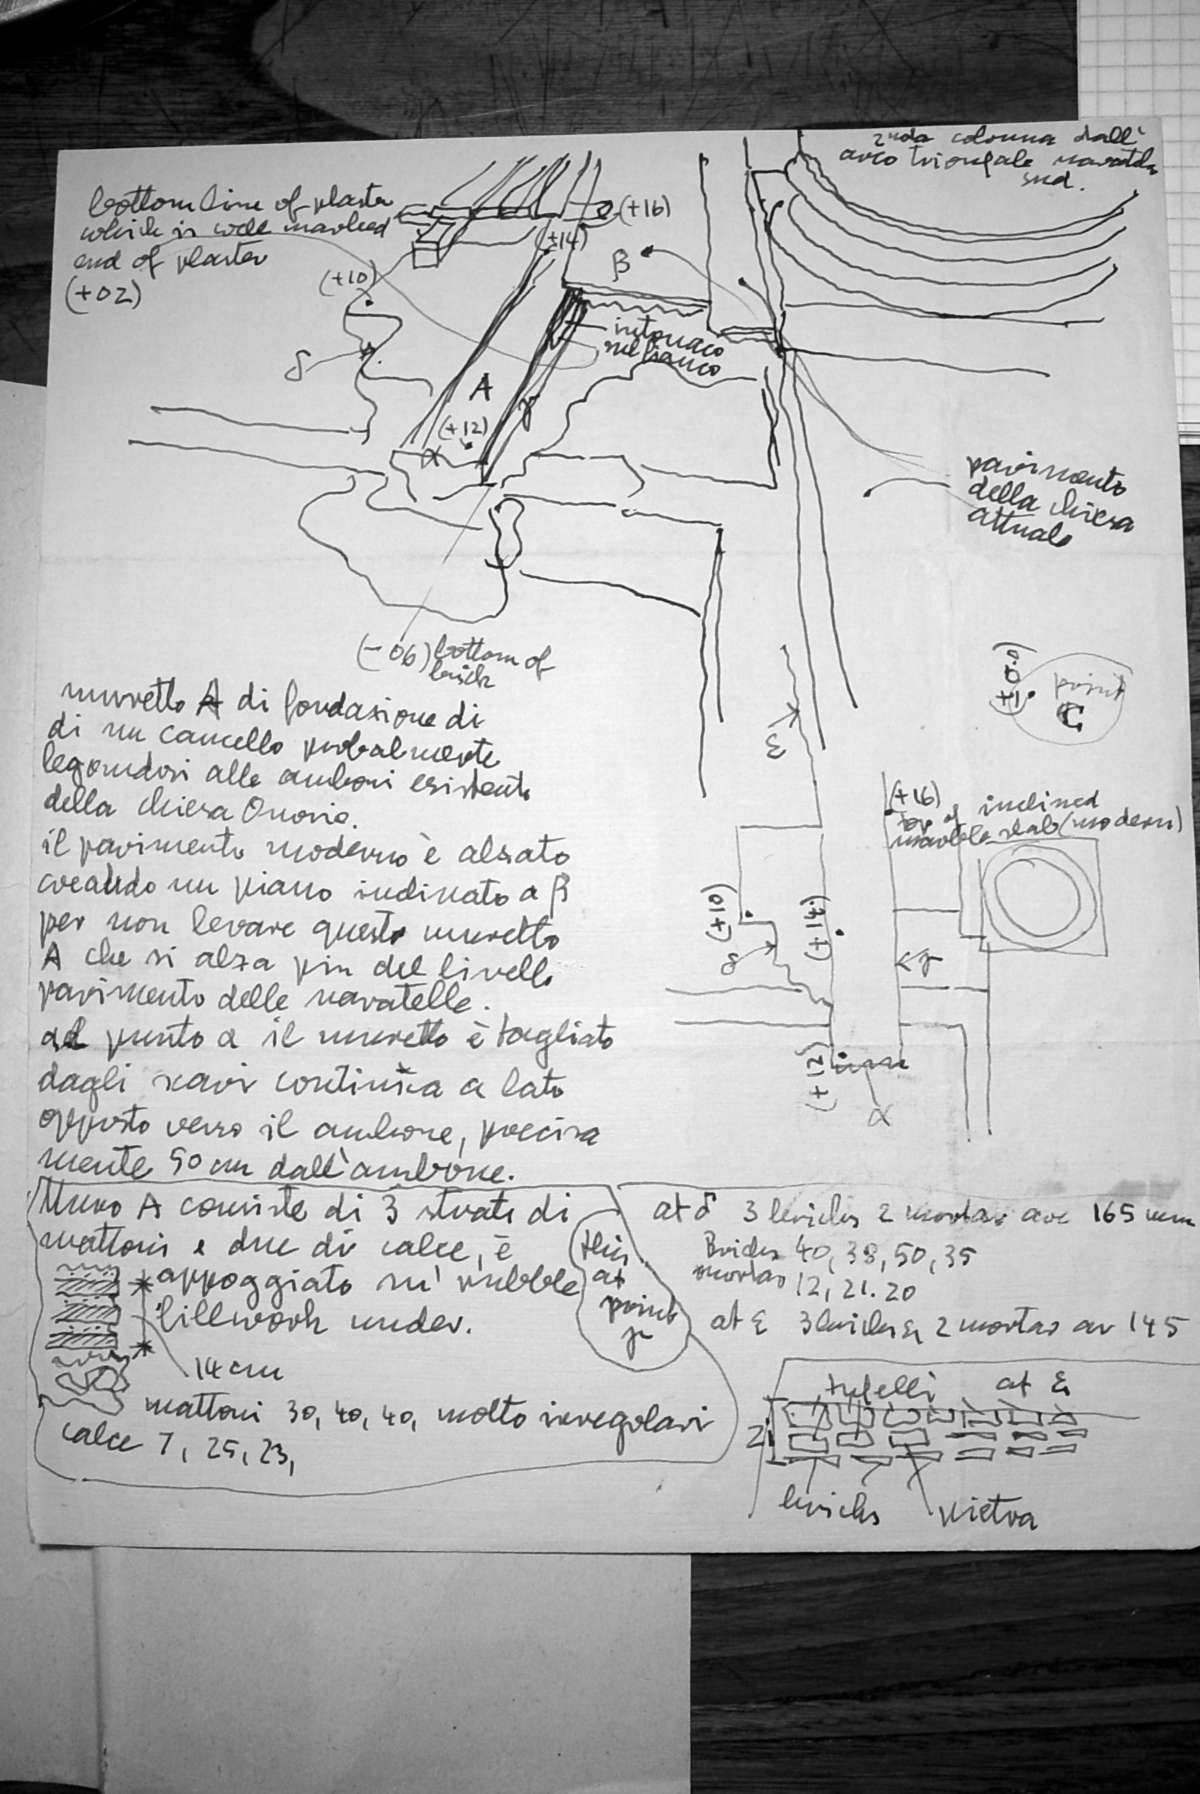 2nda colonna dall'
arco trionfale navata
sud.
bottom line of plaster
which is well marked
end of plaster
(+02)
(+16)
(+14)
(+10)
β
intonaco
sul fianco
δ
A
γ
(+12)
α
pavimento
della chiesa
attuale
(-06) bottom of
brick
(±0.0)
point
C
ε
muretto A di fondazione di
di un cancello probalmente
legandosi alle amboni esistente
della chiesa Onorio.
il pavimento moderno è alzato
creando un piano inclinato a β
per non levare questo muretto
A che si alza piu del livello
pavimento delle navatelle.
al punto α il muretto è tagliato
dagli scavi continua a lato
opposto verso il ambone, precisa
mente 50 cm dall'ambone.
(+16)
top of inclined
marble slab (modern)
(+10)
(+14)
δ
γ
(+12)
α
Muro A consiste di 3 strati di
mattoni e due di calce, è
appoggiato su' rubble
fillwork under.
this
at
point
γ
14 cm
mattoni 30, 40, 40, molto irregolari
calce 7, 25, 23,
at δ 3 bricks 2 mortar are 165 mm
Bricks 40, 38, 50, 35
mortar 12, 21. 20
at ε 3 bricks & 2 mortar are 145
tufelli at ε
bricks
pietra